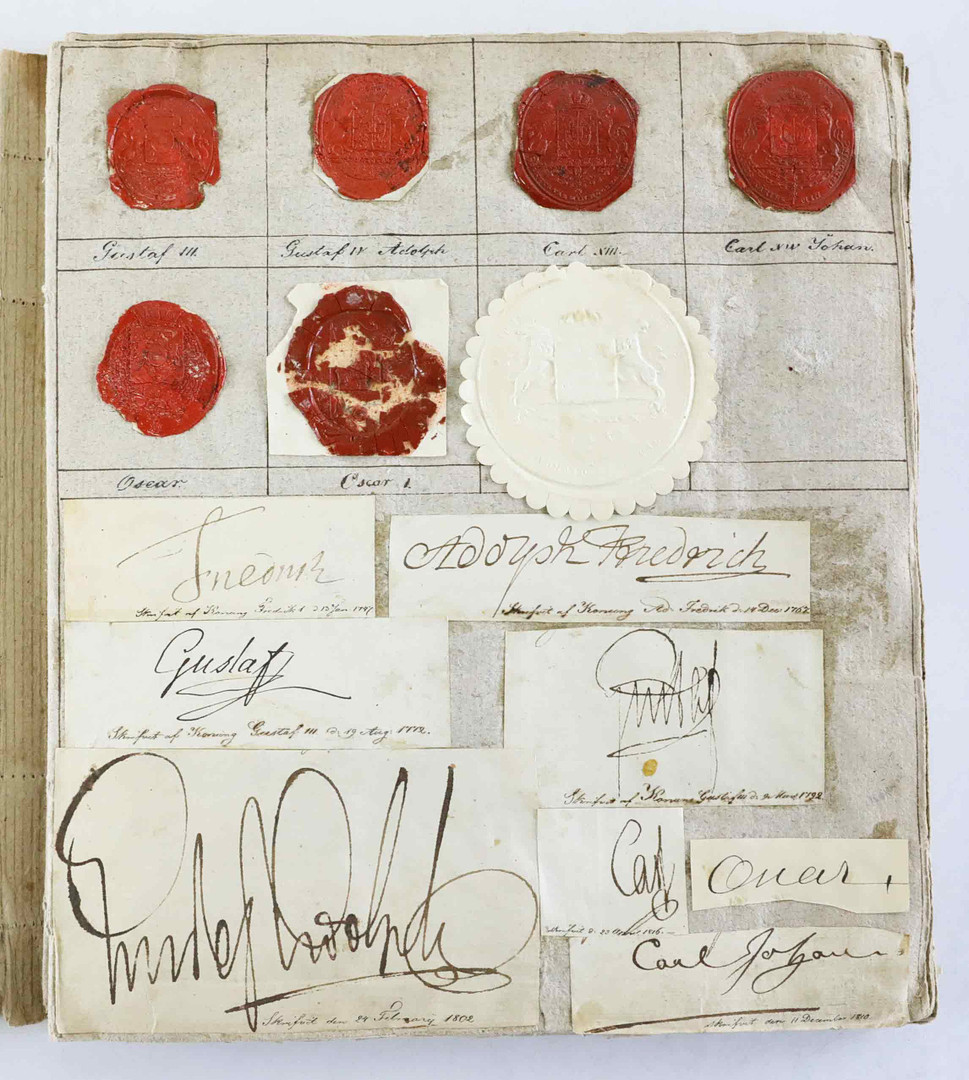 Gustaf III.
Gustaf IV Adolph
Carl XIII.
Carl XIV Johan.
Oscar.
Oscar 1.
Friedrich
Adolph Friedrich
Skrifvit af Konung Fredrik 1 d 13 Jan
Skrifvit af Konung Ad. Fredrik d. 18 Dec
Gustaf
Gustaf
Skrifvit af Konung Gustaf III d. 19 Aug. 1772.
Skrifvit af Konung Gustaf III d. 1792
Gustaf Adolph
Carl
Oscar
Skrifvit d. 23
Carl Johan
Skrifvit den 24 February 1802
skrifvit den 11 December